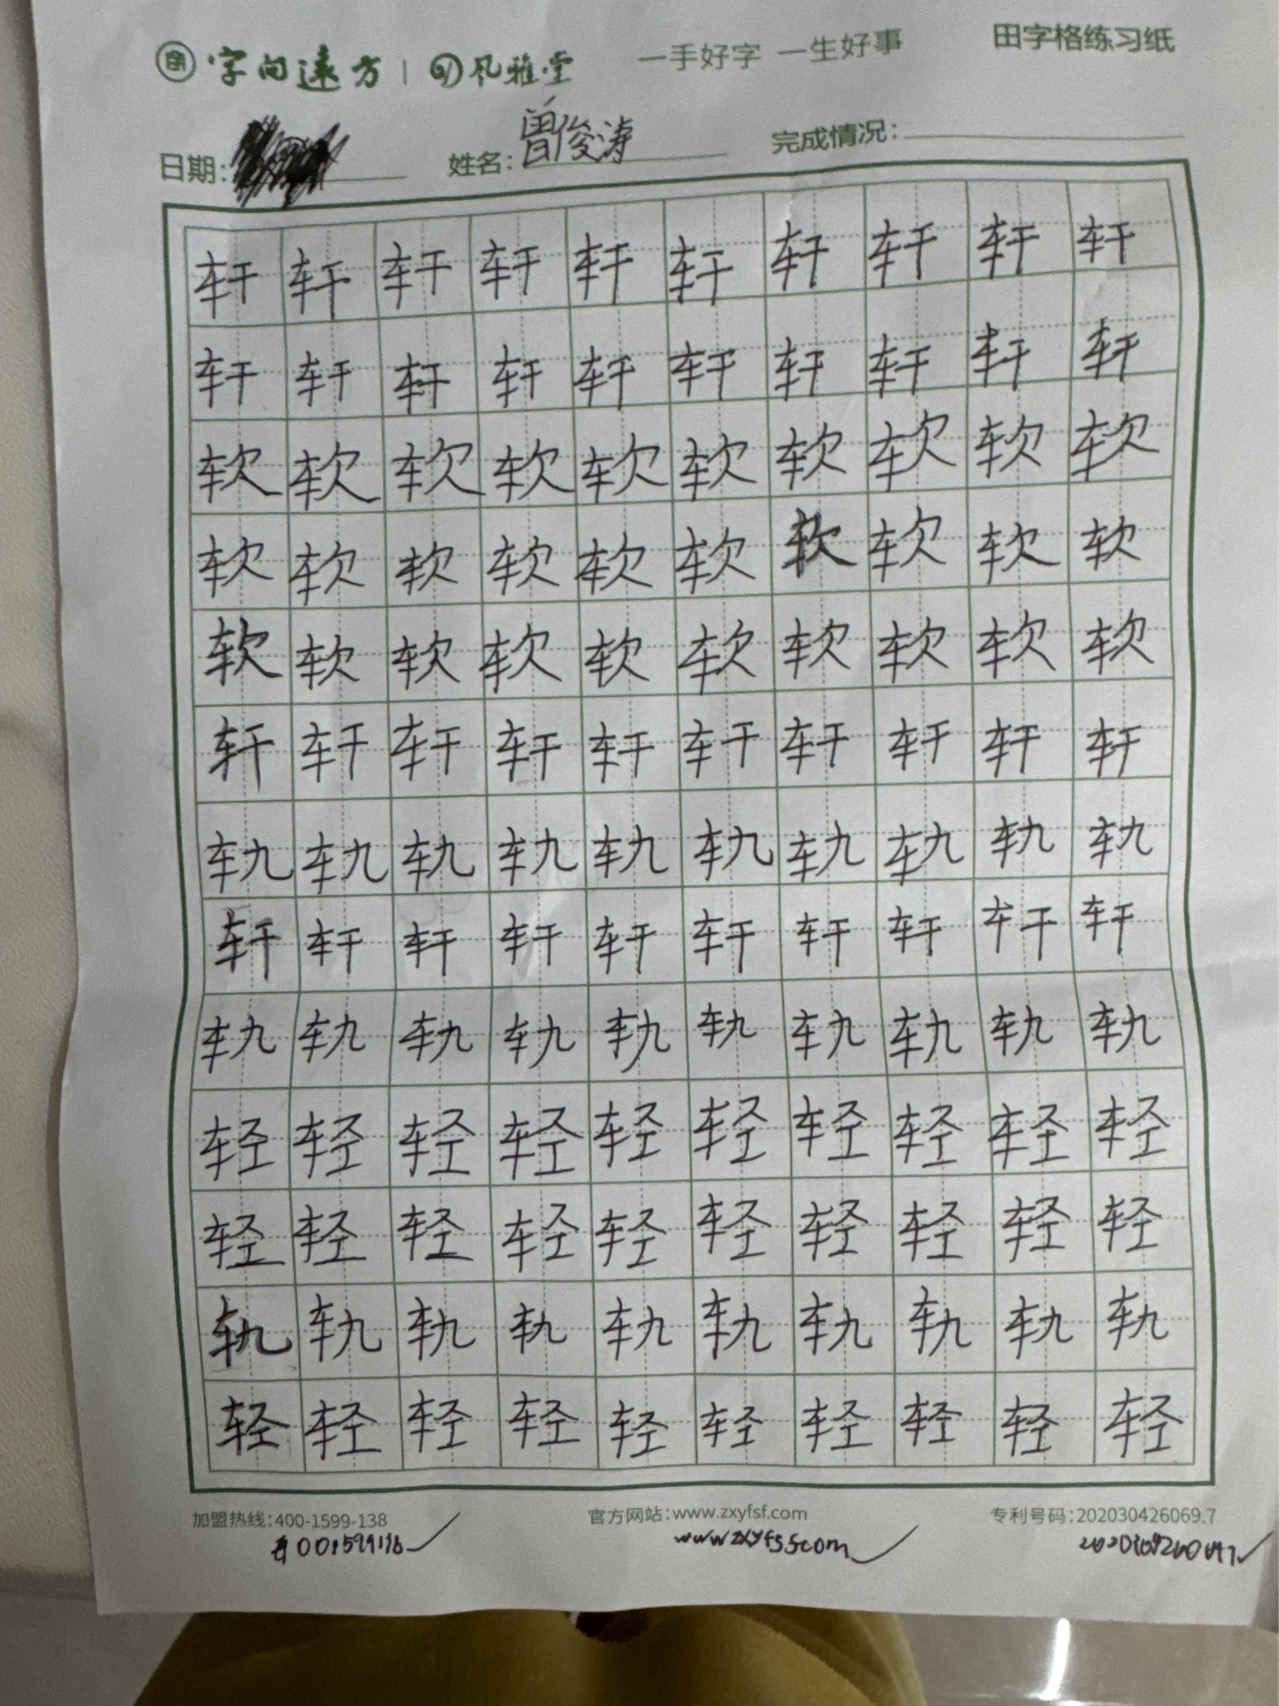 字问远方 | 风雅堂 一手好字 一生好事 田字格练习纸
日期: 姓名: 曾俊涛 完成情况:
轩轩轩轩轩轩轩轩轩轩
轩轩轩轩轩轩轩轩轩轩
软软软软软软软软软软
软软软软软软软软软软
软软软软软软软软软软
轩轩轩轩轩轩轩轩轩轩
轨轨轨轨轨轨轨轨轨轨
轩轩轩轩轩轩轩轩轩轩
轨轨轨轨轨轨轨轨轨轨
轻轻轻轻轻轻轻轻轻轻
轻轻轻轻轻轻轻轻轻轻
轨轨轨轨轨轨轨轨轨轨
轻轻轻轻轻轻轻轻轻轻
加盟热线:400-1599-138 官方网站:www.zxyfsf.com 专利号码:202030426069.7